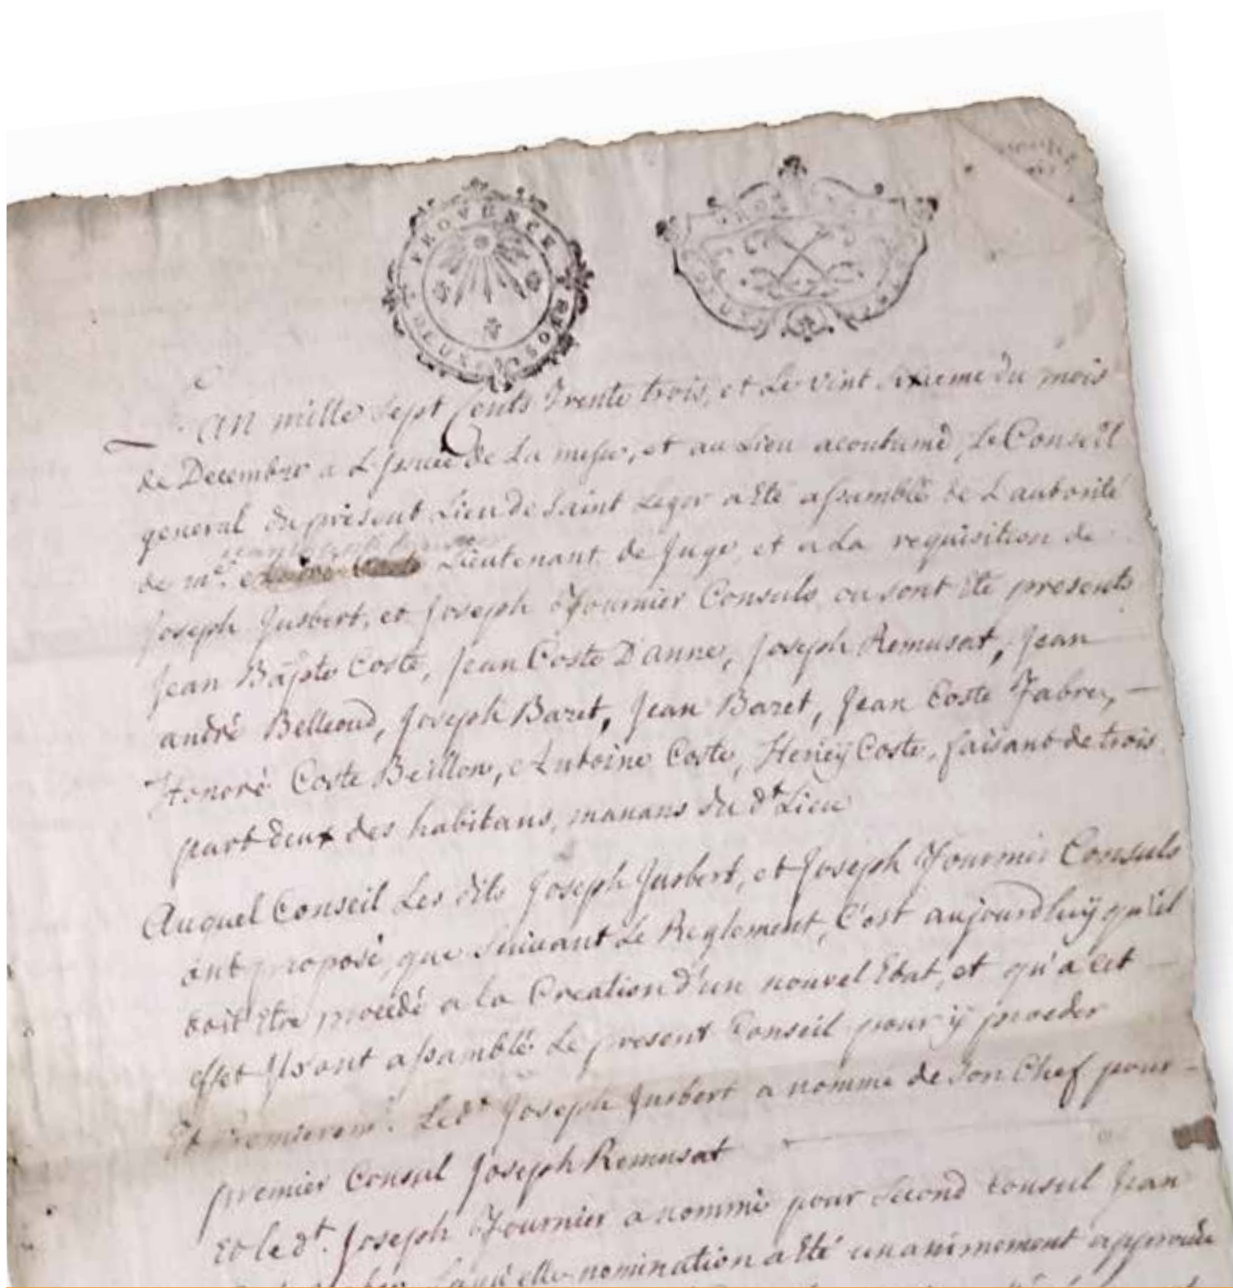 PROVENCE DEUX SOLS
L'AN mille sept Cents Trente trois, et Le vint sixieme du mois
de Decembre a L'Issuë de La messe, et au Lieu acoutumé, Le Conseil
general du present Lieu de Saint Leger a Eté assamblé de L'autorité
de me. Lieutenant de Juge, et a La requisition de
Joseph Jusbert, et Joseph Fournier Consuls, ou sont Eté presents
Jean Bapte Coste, Jean Coste D'anne, Joseph Remusat, Jean
andré Bellioud, Joseph Baret, Jean Baret, Jean Coste Fabre, —
Honoré Coste Beillon, Antoine Coste, Henry Coste, faisant de trois
part deux des habitans, manans du dt Lieu
Auquel Conseil Les dits Joseph Jusbert, et Joseph Fournier Consuls
ont proposé, que suivant Le Reglement, C'est aujourd'huy qu'il
doit Etre procédé a la Creation d'un nouvel Etat, et qu'a cet
effet Ils ont assamblé Le present Conseil pour y proceder
Et Premieremt. Ledt Joseph Jusbert a nommé de son Chef pour
premier Consul Joseph Remusat
Et le dt. Joseph Fournier a nommé pour second Consul Jean
laquelle nomination a Eté unanimement approuvée